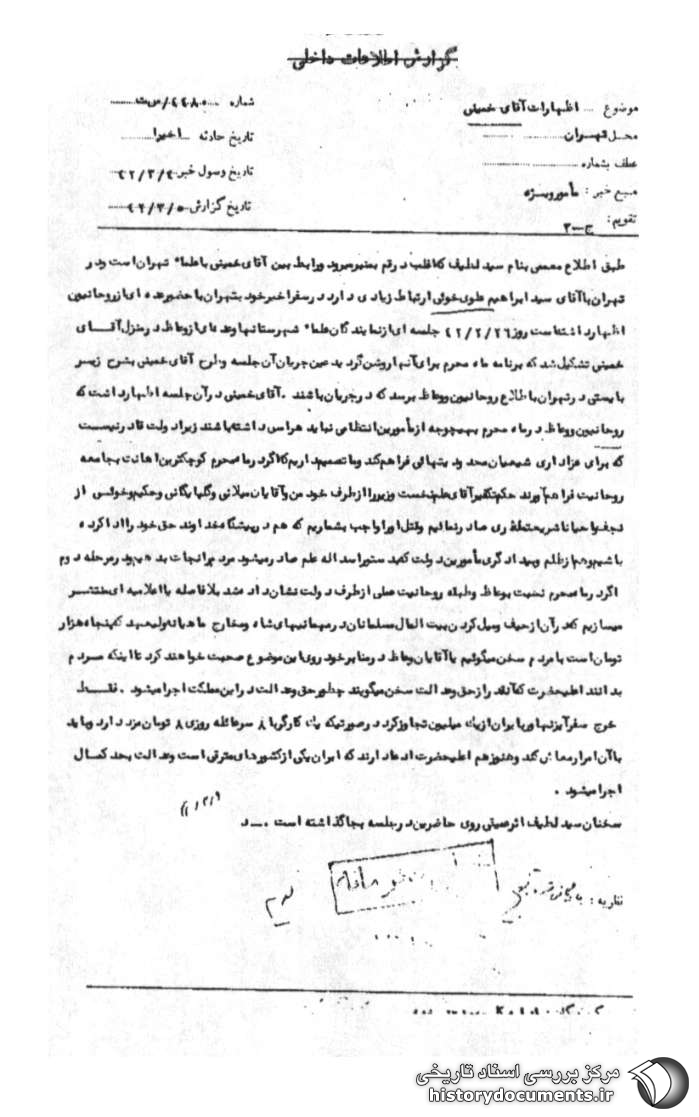 گزارش اطلاعات داخلی
موضوع ... اظهارات آقای خمینی
شماره ... س ت
محل تهران
تاریخ حادثه اخیرا
عطف بشماره
تاریخ وصول خبر ۴۲/۳/۴
منبع خبر : مأمور ویژه
تاریخ گزارش ۴۲/۳/۵
تقویم: ج-۲
طبق اطلاع معممی بنام سید لطیف که اغلب در قم بسر میبرد و رابط بین آقای خمینی با علماء تهران است و در
تهران با آقای سید ابراهیم علوی خوئی ارتباط زیادی دارد در سفر اخیر خود بتهران با حضور عده ای از روحانیون
اظهار داشته است روز ۴۲/۲/۲۶ جلسه ای از نمایندگان علماء شهرستانها و عده ای از وعاظ در منزل آقای
خمینی تشکیل شد که برنامه ماه محرم برای آنها روشن گردید عین جریان آن جلسه و طرح آقای خمینی بشرح زیر
بایستی در تهران باطلاع روحانیون و وعاظ برسد که در جریان باشند . آقای خمینی در آن جلسه اظهار داشت که
روحانیون و وعاظ در ماه محرم بهیچوجه از مأمورین انتظامی نباید هراسی داشته باشند زیرا دولت قادر نیست
که برای عزاداری شیعیان محدودیتهائی فراهم کند و ما تصمیم داریم که اگر در ماه محرم کوچکترین اهانت بجامعه
روحانیت فراهم آورند حکم تکفیر آقای علم نخست وزیر را از طرف خود من و آقایان میلانی و گلپایگانی و حکیم و خوئی از
نجف و احیانا شریعتمداری صادر نمائیم و قتل او را واجب بشماریم که هم در پیشگاه خداوند حق خود را ادا کرده
باشیم و هم از ظلم و بیدادگری مأمورین دولت که بدستور اسداله علم صادر میشود مردم را نجات بدهیم در مرحله دوم
اگر در ماه محرم نسبت بوعاظ و طبقه روحانیت عملی از طرف دولت نشان داده شد بلافاصله با اعلامیه ای منتشر
میسازیم که در آن از حیف و میل کردن بیت المال مسلمانان در مهمانیهای شاه و مخارج ماهیانه ولیعهد که پنجاه هزار
تومان است با مردم سخن میگوئیم یا آقایان وعاظ در منابر خود روی این موضوع صحبت خواهند کرد تا اینکه مردم
بدانند اعلیحضرت که آنقدر از حق و عدالت سخن میگویند چطور حق و عدالت در این مملکت اجرا میشود . فقط
خرج سفر آیزنهاور بایران از یک میلیون تجاوز کرد در صورتیکه یک کارگر با ۸ سر عائله روزی ۸ تومان مزد دارد و باید
با آن امرار معاش کند و هنوز هم اعلیحضرت ادعا دارند که ایران یکی از کشورهای مترقی است و عدالت بحد کمال
اجرا میشود .
سخنان سید لطیف اثر عمیقی روی حاضرین در جلسه بجا گذاشته است .
نظریه :
مرکز بررسی اسناد تاریخی
historydocuments.ir